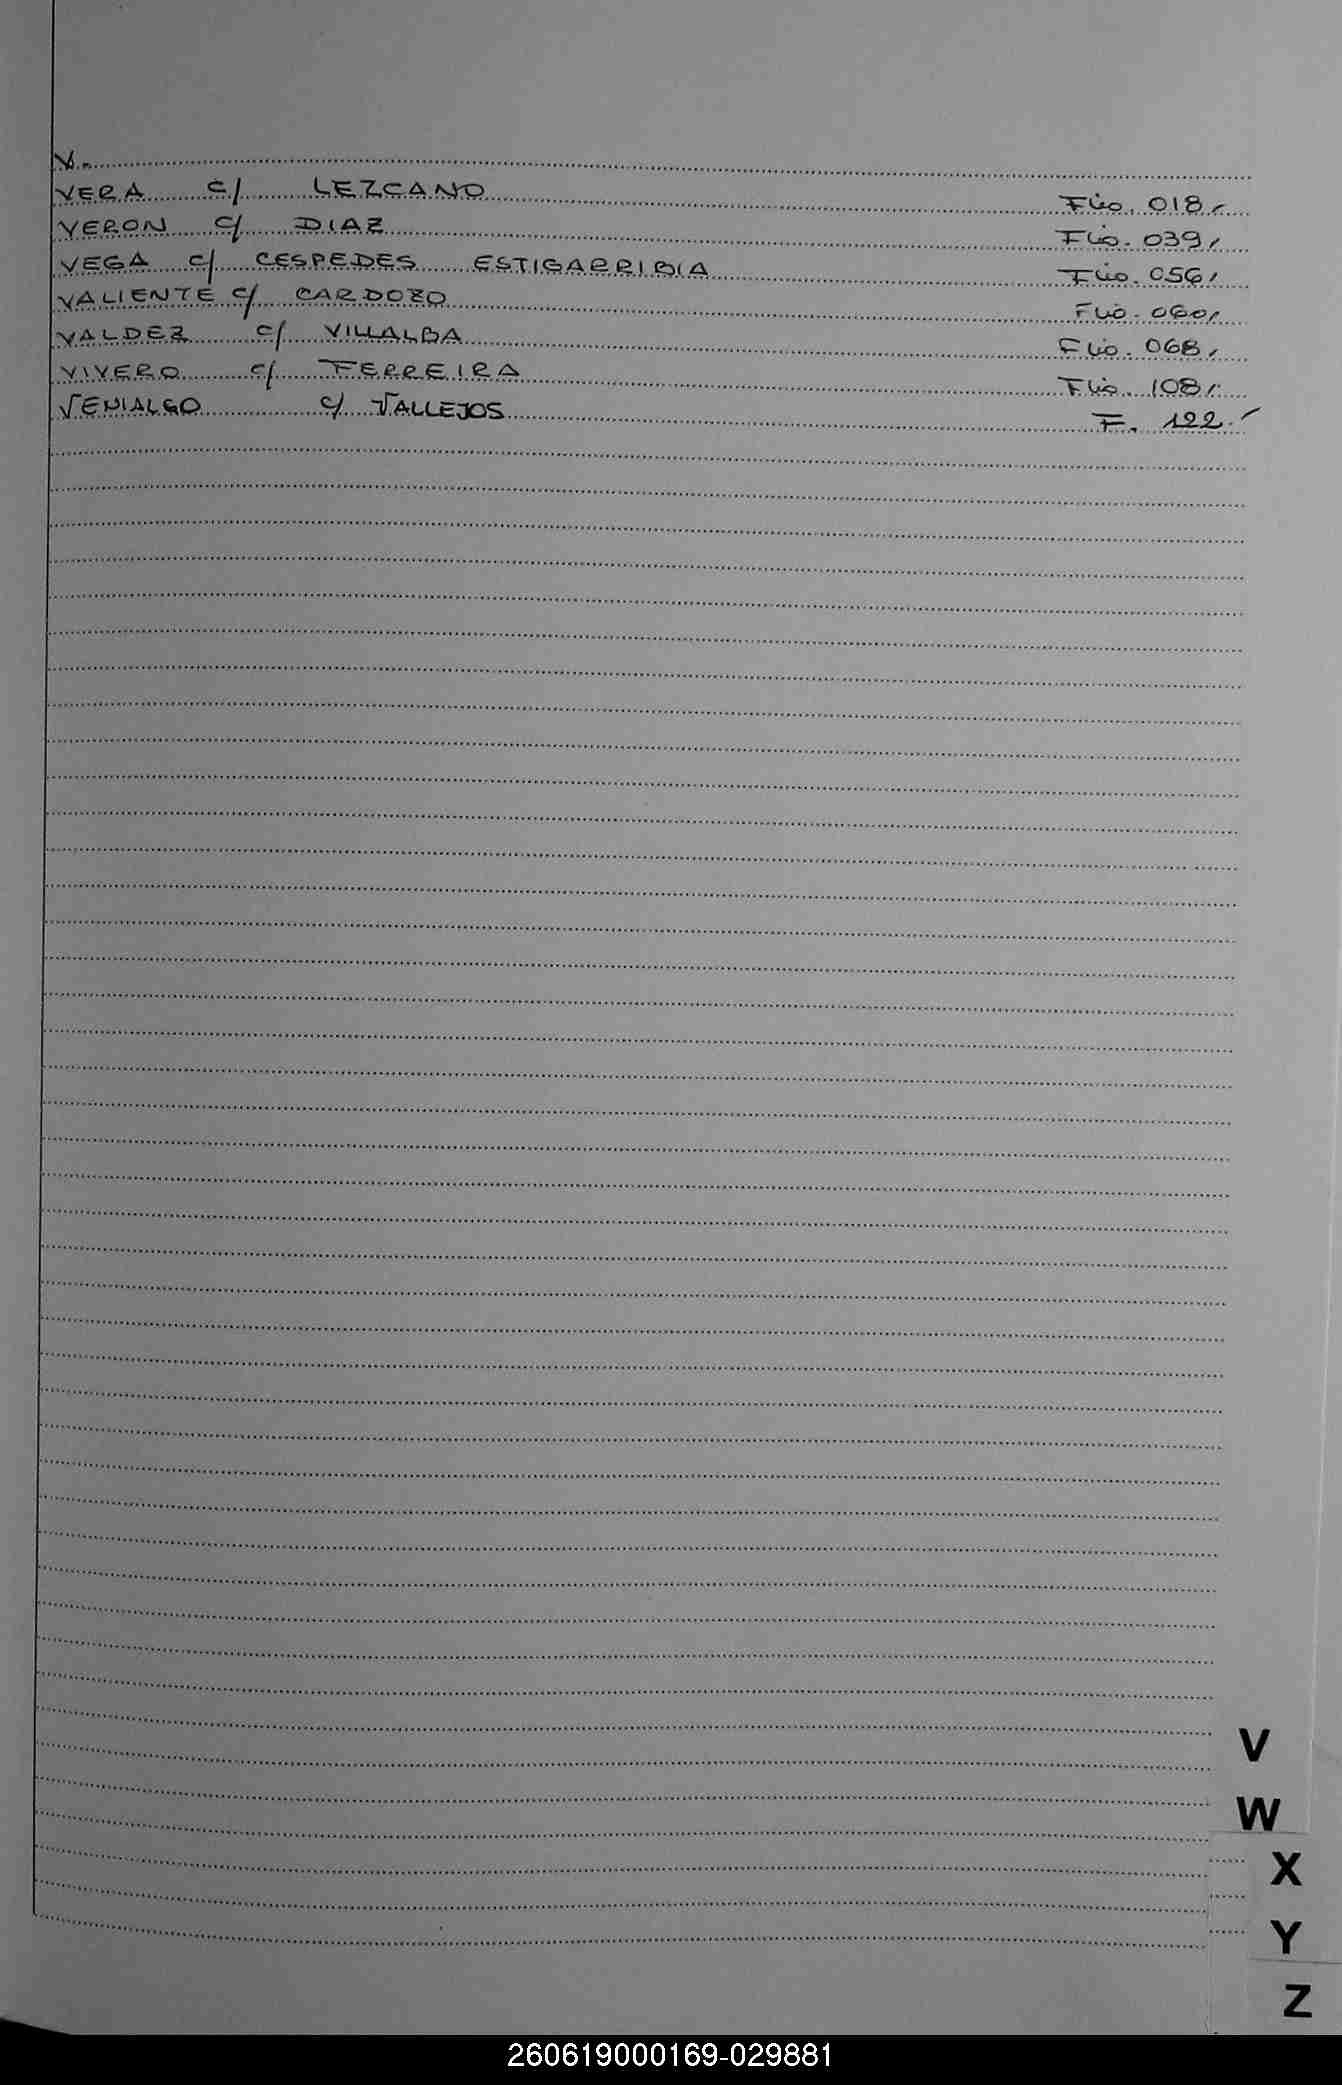 V.
VERA c/ LEZCANO Flio. 018,
VERON c/ DIAZ Flio. 039,
VEGA c/ CESPEDES ESTIGARRIBIA Flio. 056,
VALIENTE c/ CARDOZO Flio. 060,
VALDEZ c/ VILLALBA Flio. 068,
VIVERO c/ FERREIRA Flio. 108,
VENIALGO c/ VALLEJOS F. 122.
V
W
X
Y
Z
260619000169-029881